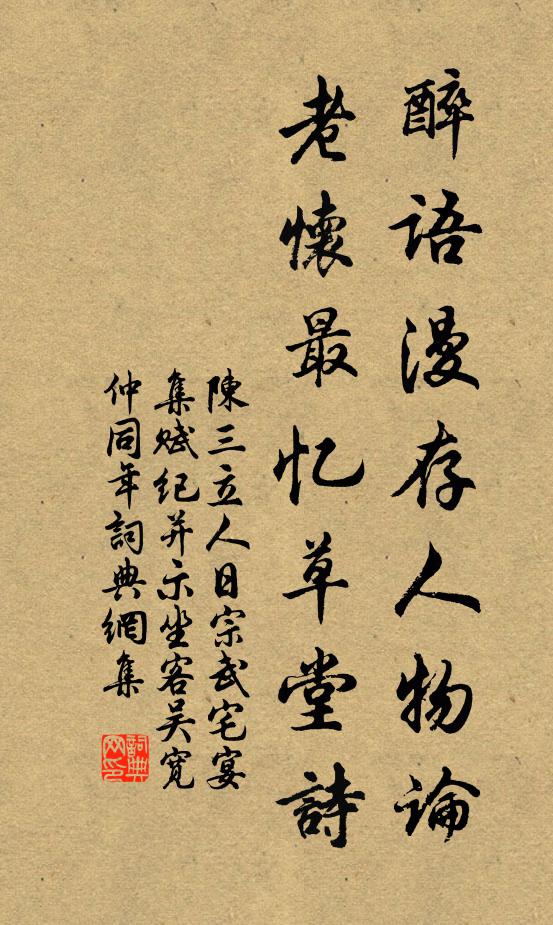 醉語漫存人物論
老懷最忆草堂詩
陳三立人日宗武宅宴
集賦纪并示坐客吴寬
仲同年詞典網集
詞典网印